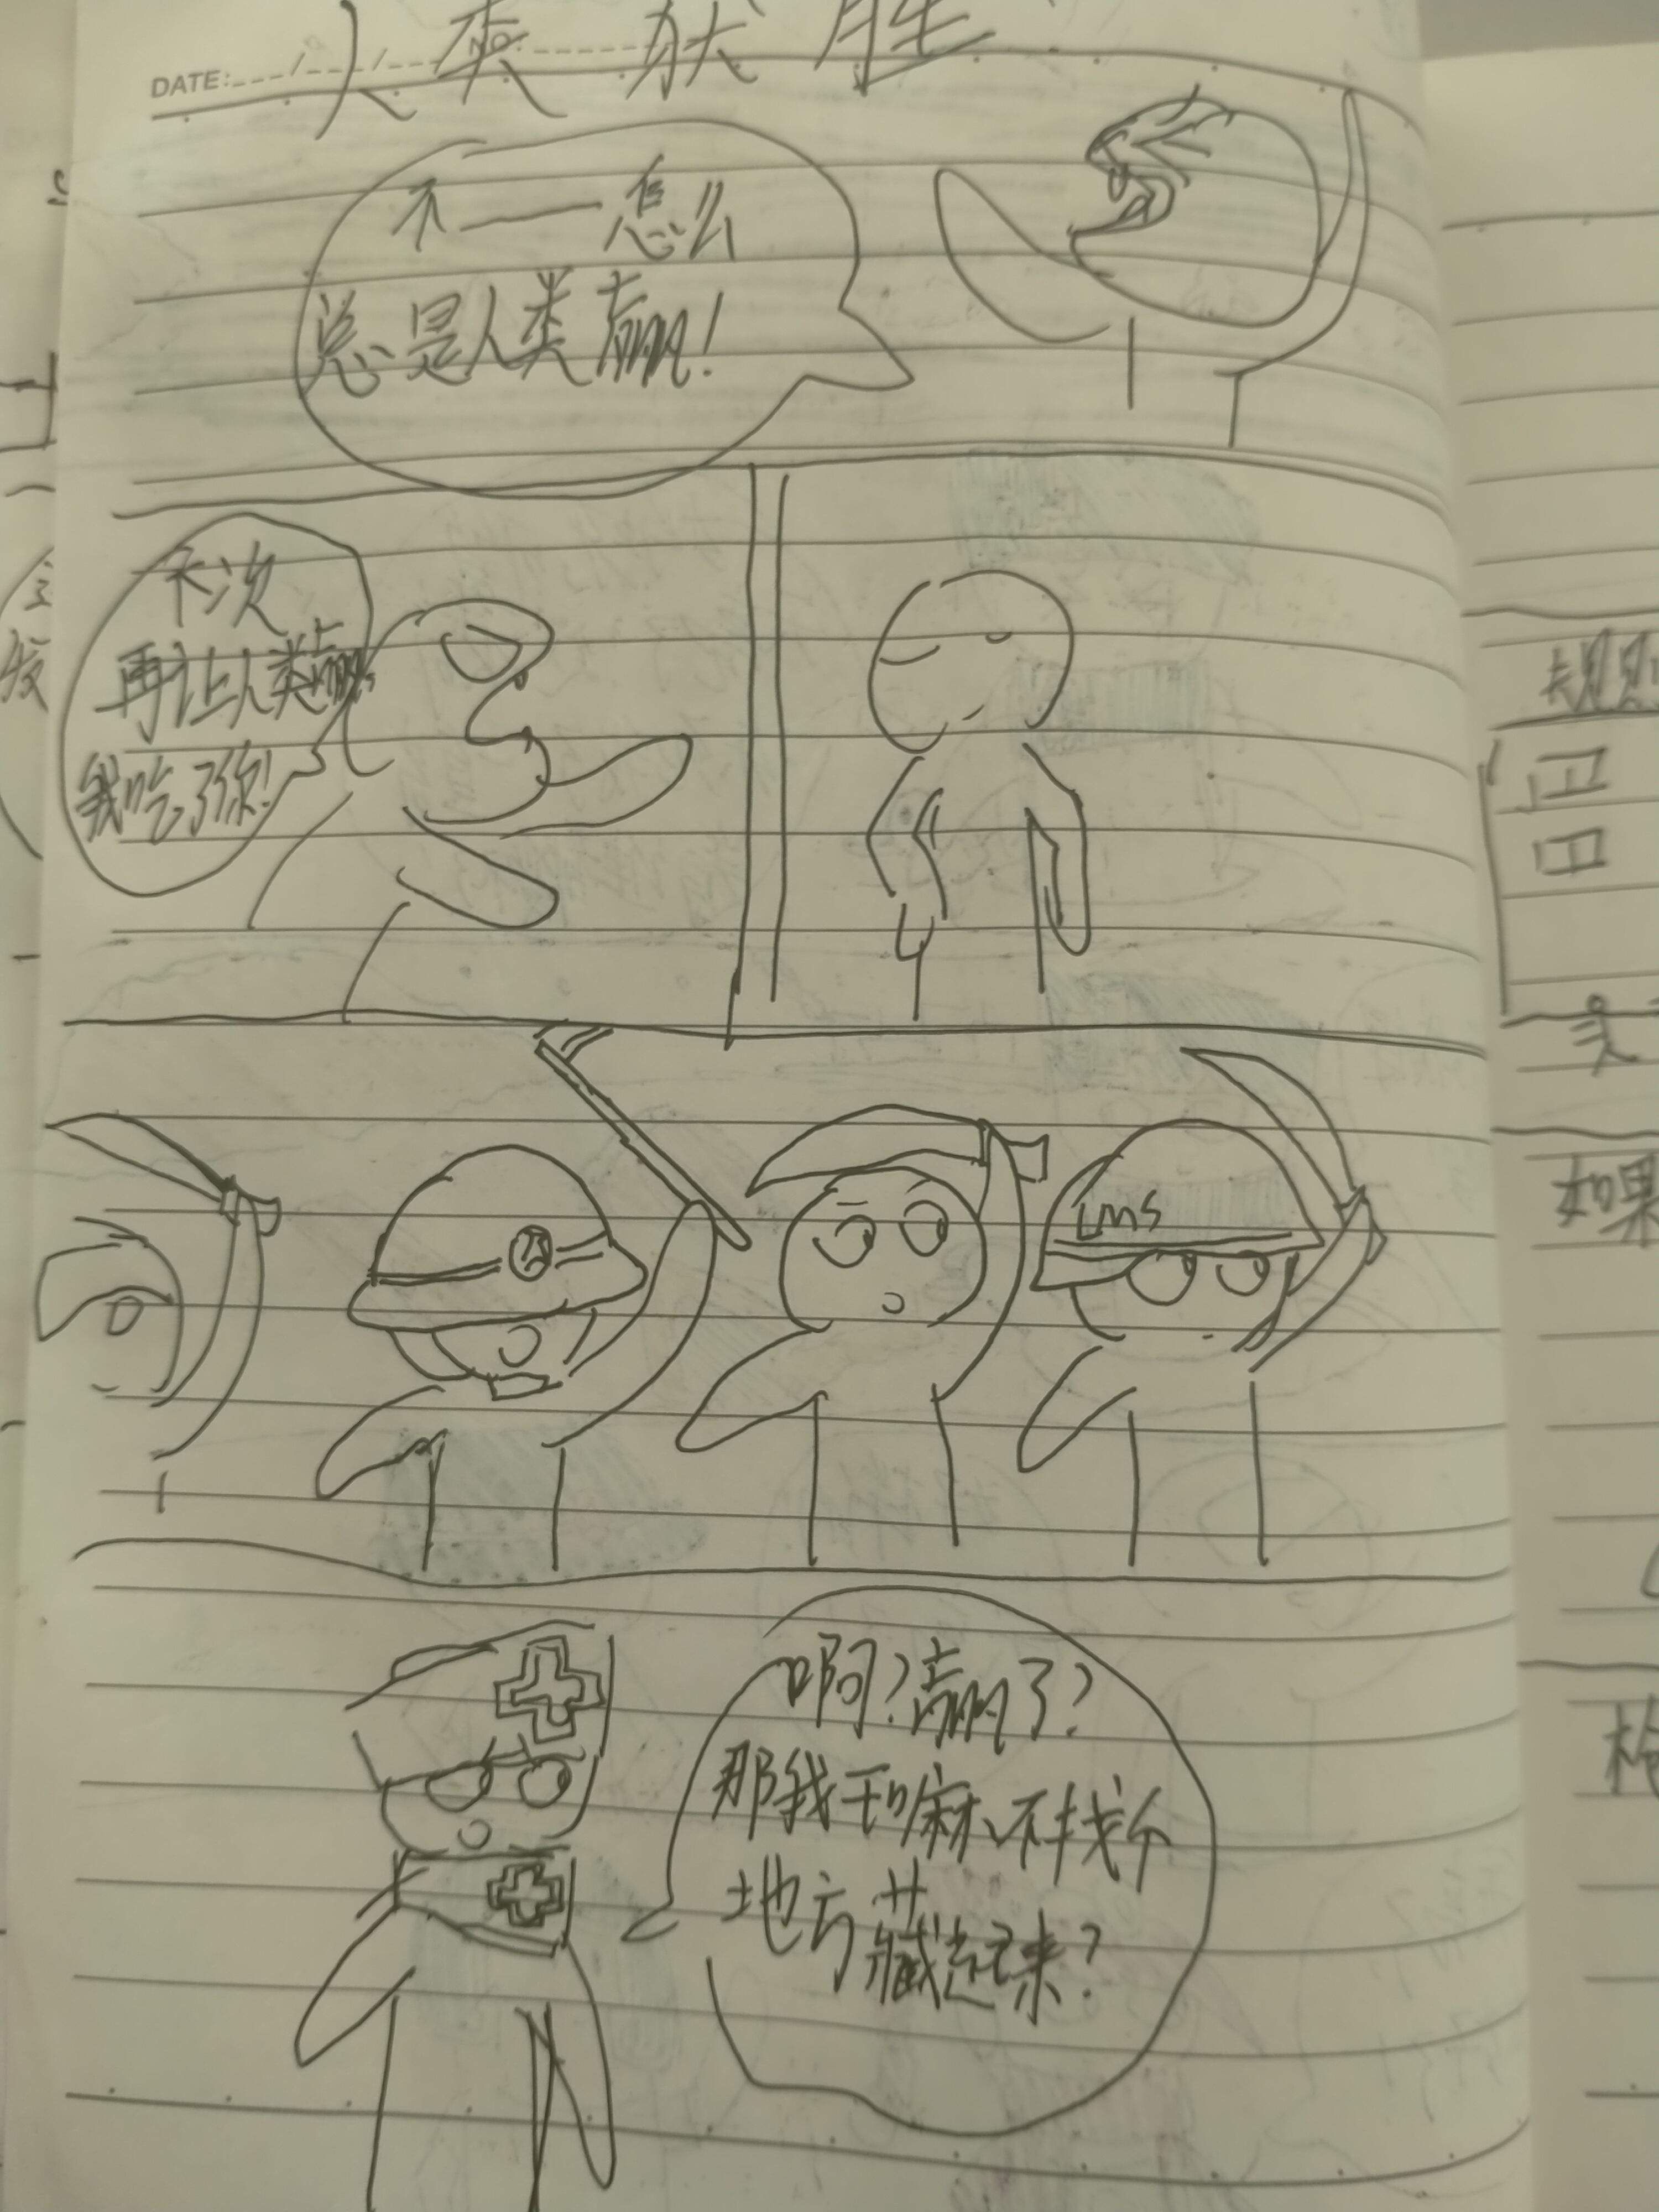 人类获胜
DATE:
NO:
不——怎么
总是人类赢!
下次
再让人类赢
我吃了你!
LMS
啊?赢了?
那我干嘛不找个
地方藏起来?
规则
如果
枪